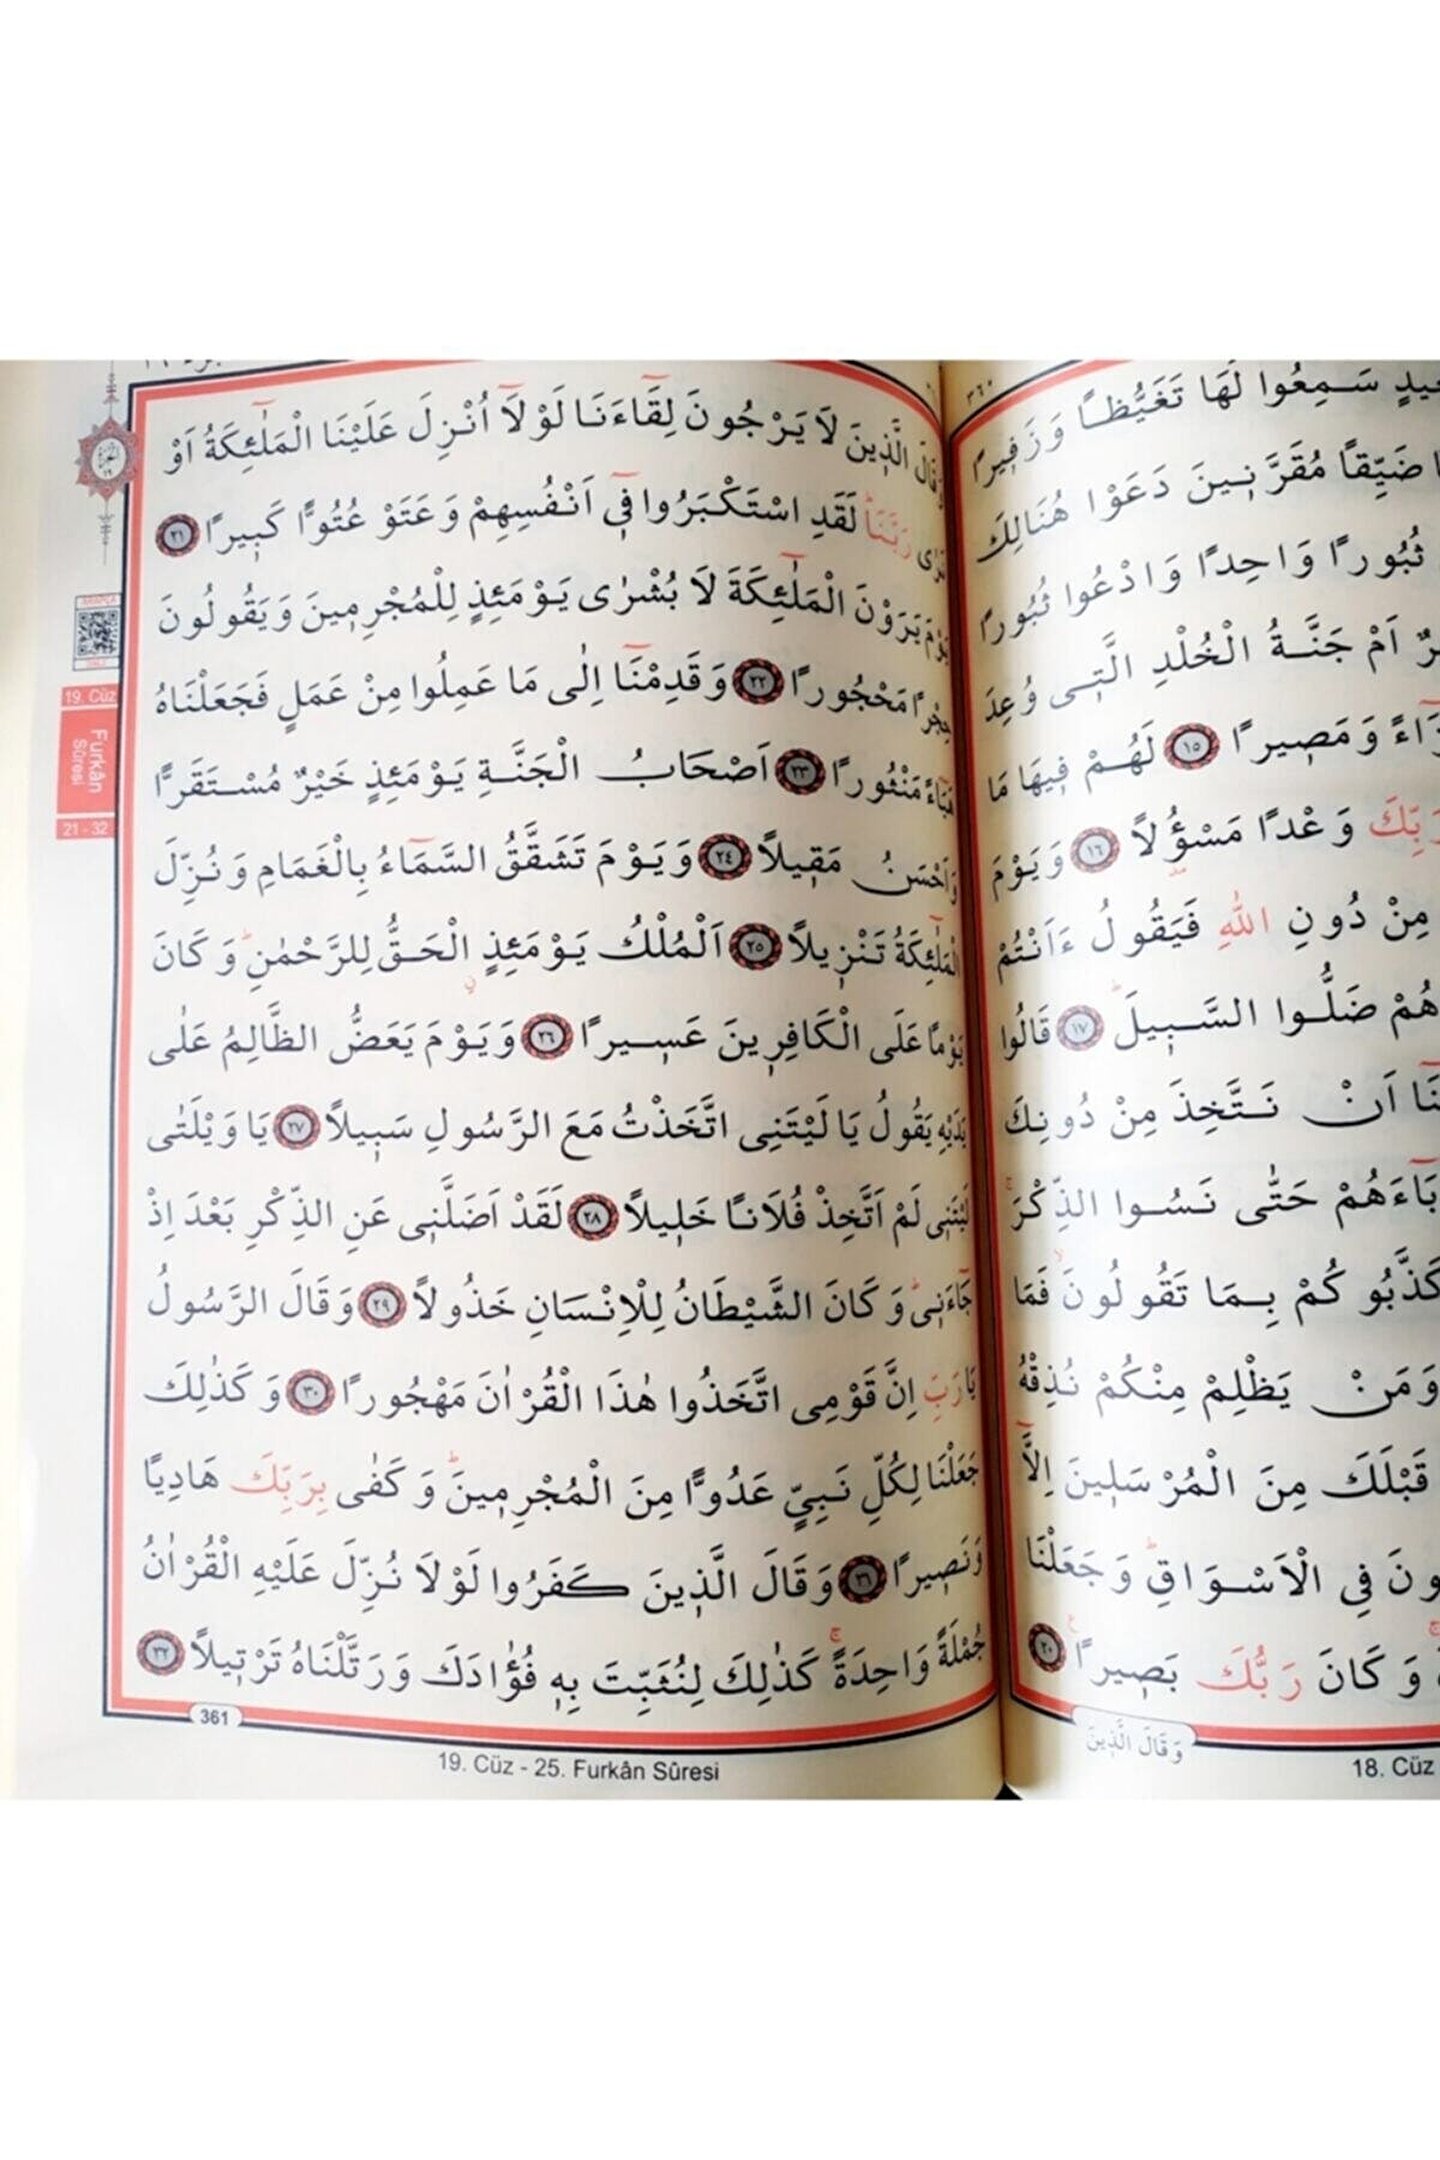 سَمِعُوا لَهَا تَغَيُّظًا وَزَفِيرًا
ضَيِّقًا مُقَرَّنِينَ دَعَوْا هُنَالِكَ
ثُبُورًا وَاحِدًا وَادْعُوا ثُبُورًا
اَمْ جَنَّةُ الْخُلْدِ الَّتِى وُعِدَ
وَمَصِيرًا ١٥ لَهُمْ فِيهَا مَا
رَبِّكَ وَعْدًا مَسْؤُلًا ١٦ وَيَوْمَ
مِنْ دُونِ اللّٰهِ فَيَقُولُ ءَاَنْتُمْ
هُمْ ضَلُّوا السَّبِيلَ ١٧ قَالُوا
اَنْ نَتَّخِذَ مِنْ دُونِكَ
حَتّٰى نَسُوا الذِّكْرَ
كَذَّبُوكُمْ بِمَا تَقُولُونَ فَمَا
وَمَنْ يَظْلِمْ مِنْكُمْ نُذِقْهُ
قَبْلَكَ مِنَ الْمُرْسَلِينَ اِلَّا
فِى الْاَسْوَاقِ وَجَعَلْنَا
وَكَانَ رَبُّكَ بَصِيرًا ٢٠
وَقَالَ الَّذِينَ
18. Cüz
٣٦٠
وَقَالَ الَّذِينَ لَا يَرْجُونَ لِقَٓاءَنَا لَوْلَٓا اُنْزِلَ عَلَيْنَا الْمَلٰٓئِكَةُ اَوْ
نَرٰى رَبَّنَا لَقَدِ اسْتَكْبَرُوا فِٓى اَنْفُسِهِمْ وَعَتَوْ عُتُوًّا كَبِيرًا ٢١
يَوْمَ يَرَوْنَ الْمَلٰٓئِكَةَ لَا بُشْرٰى يَوْمَئِذٍ لِلْمُجْرِمِينَ وَيَقُولُونَ
حِجْرًا مَحْجُورًا ٢٢ وَقَدِمْنَٓا اِلٰى مَا عَمِلُوا مِنْ عَمَلٍ فَجَعَلْنَاهُ
هَبَٓاءً مَنْثُورًا ٢٣ اَصْحَابُ الْجَنَّةِ يَوْمَئِذٍ خَيْرٌ مُسْتَقَرًّا
وَاَحْسَنُ مَقِيلًا ٢٤ وَيَوْمَ تَشَقَّقُ السَّمَٓاءُ بِالْغَمَامِ وَنُزِّلَ
الْمَلٰٓئِكَةُ تَنْزِيلًا ٢٥ اَلْمُلْكُ يَوْمَئِذٍ الْحَقُّ لِلرَّحْمٰنِ وَكَانَ
يَوْمًا عَلَى الْكَافِرِينَ عَسِيرًا ٢٦ وَيَوْمَ يَعَضُّ الظَّالِمُ عَلٰى
يَدَيْهِ يَقُولُ يَا لَيْتَنِى اتَّخَذْتُ مَعَ الرَّسُولِ سَبِيلًا ٢٧ يَا وَيْلَتٰى
لَيْتَنِى لَمْ اَتَّخِذْ فُلَانًا خَلِيلًا ٢٨ لَقَدْ اَضَلَّنِى عَنِ الذِّكْرِ بَعْدَ اِذْ
جَٓاءَنِى وَكَانَ الشَّيْطَانُ لِلْاِنْسَانِ خَذُولًا ٢٩ وَقَالَ الرَّسُولُ
يَا رَبِّ اِنَّ قَوْمِى اتَّخَذُوا هٰذَا الْقُرْاٰنَ مَهْجُورًا ٣٠ وَكَذٰلِكَ
جَعَلْنَا لِكُلِّ نَبِىٍّ عَدُوًّا مِنَ الْمُجْرِمِينَ وَكَفٰى بِرَبِّكَ هَادِيًا
وَنَصِيرًا ٣١ وَقَالَ الَّذِينَ كَفَرُوا لَوْلَا نُزِّلَ عَلَيْهِ الْقُرْاٰنُ
جُمْلَةً وَاحِدَةً كَذٰلِكَ لِنُثَبِّتَ بِهِ فُؤٰادَكَ وَرَتَّلْنَاهُ تَرْتِيلًا ٣٢
361
19. Cüz - 25. Furkân Sûresi
19. Cüz
Furkân
Sûresi
21 - 32